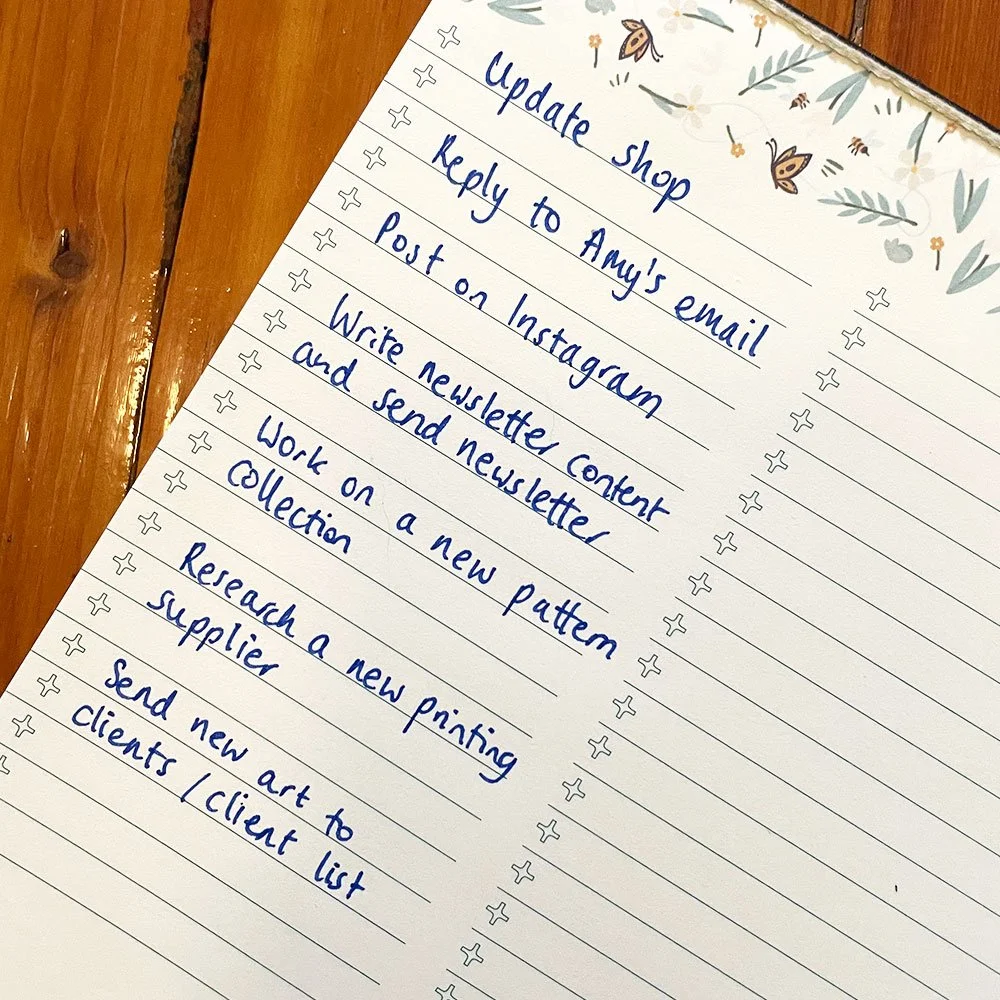 Update shop
Reply to Amy's email
Post on Instagram
Write newsletter content
and send newsletter
Work on a new pattern
collection
Research a new printing
supplier
Send new art to
clients / client list